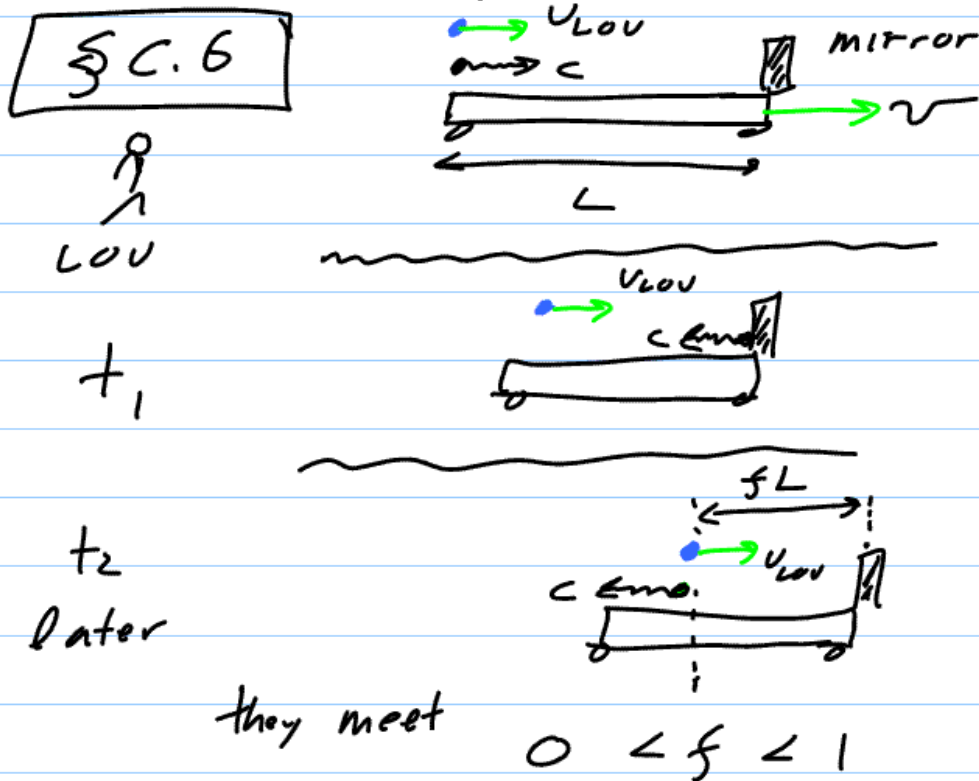 § C.6
v_LOU
c
mirror
v
L
LOU
v_LOU
c
t_1
fL
t_2
v_LOU
c
later
they meet
0 < f < 1